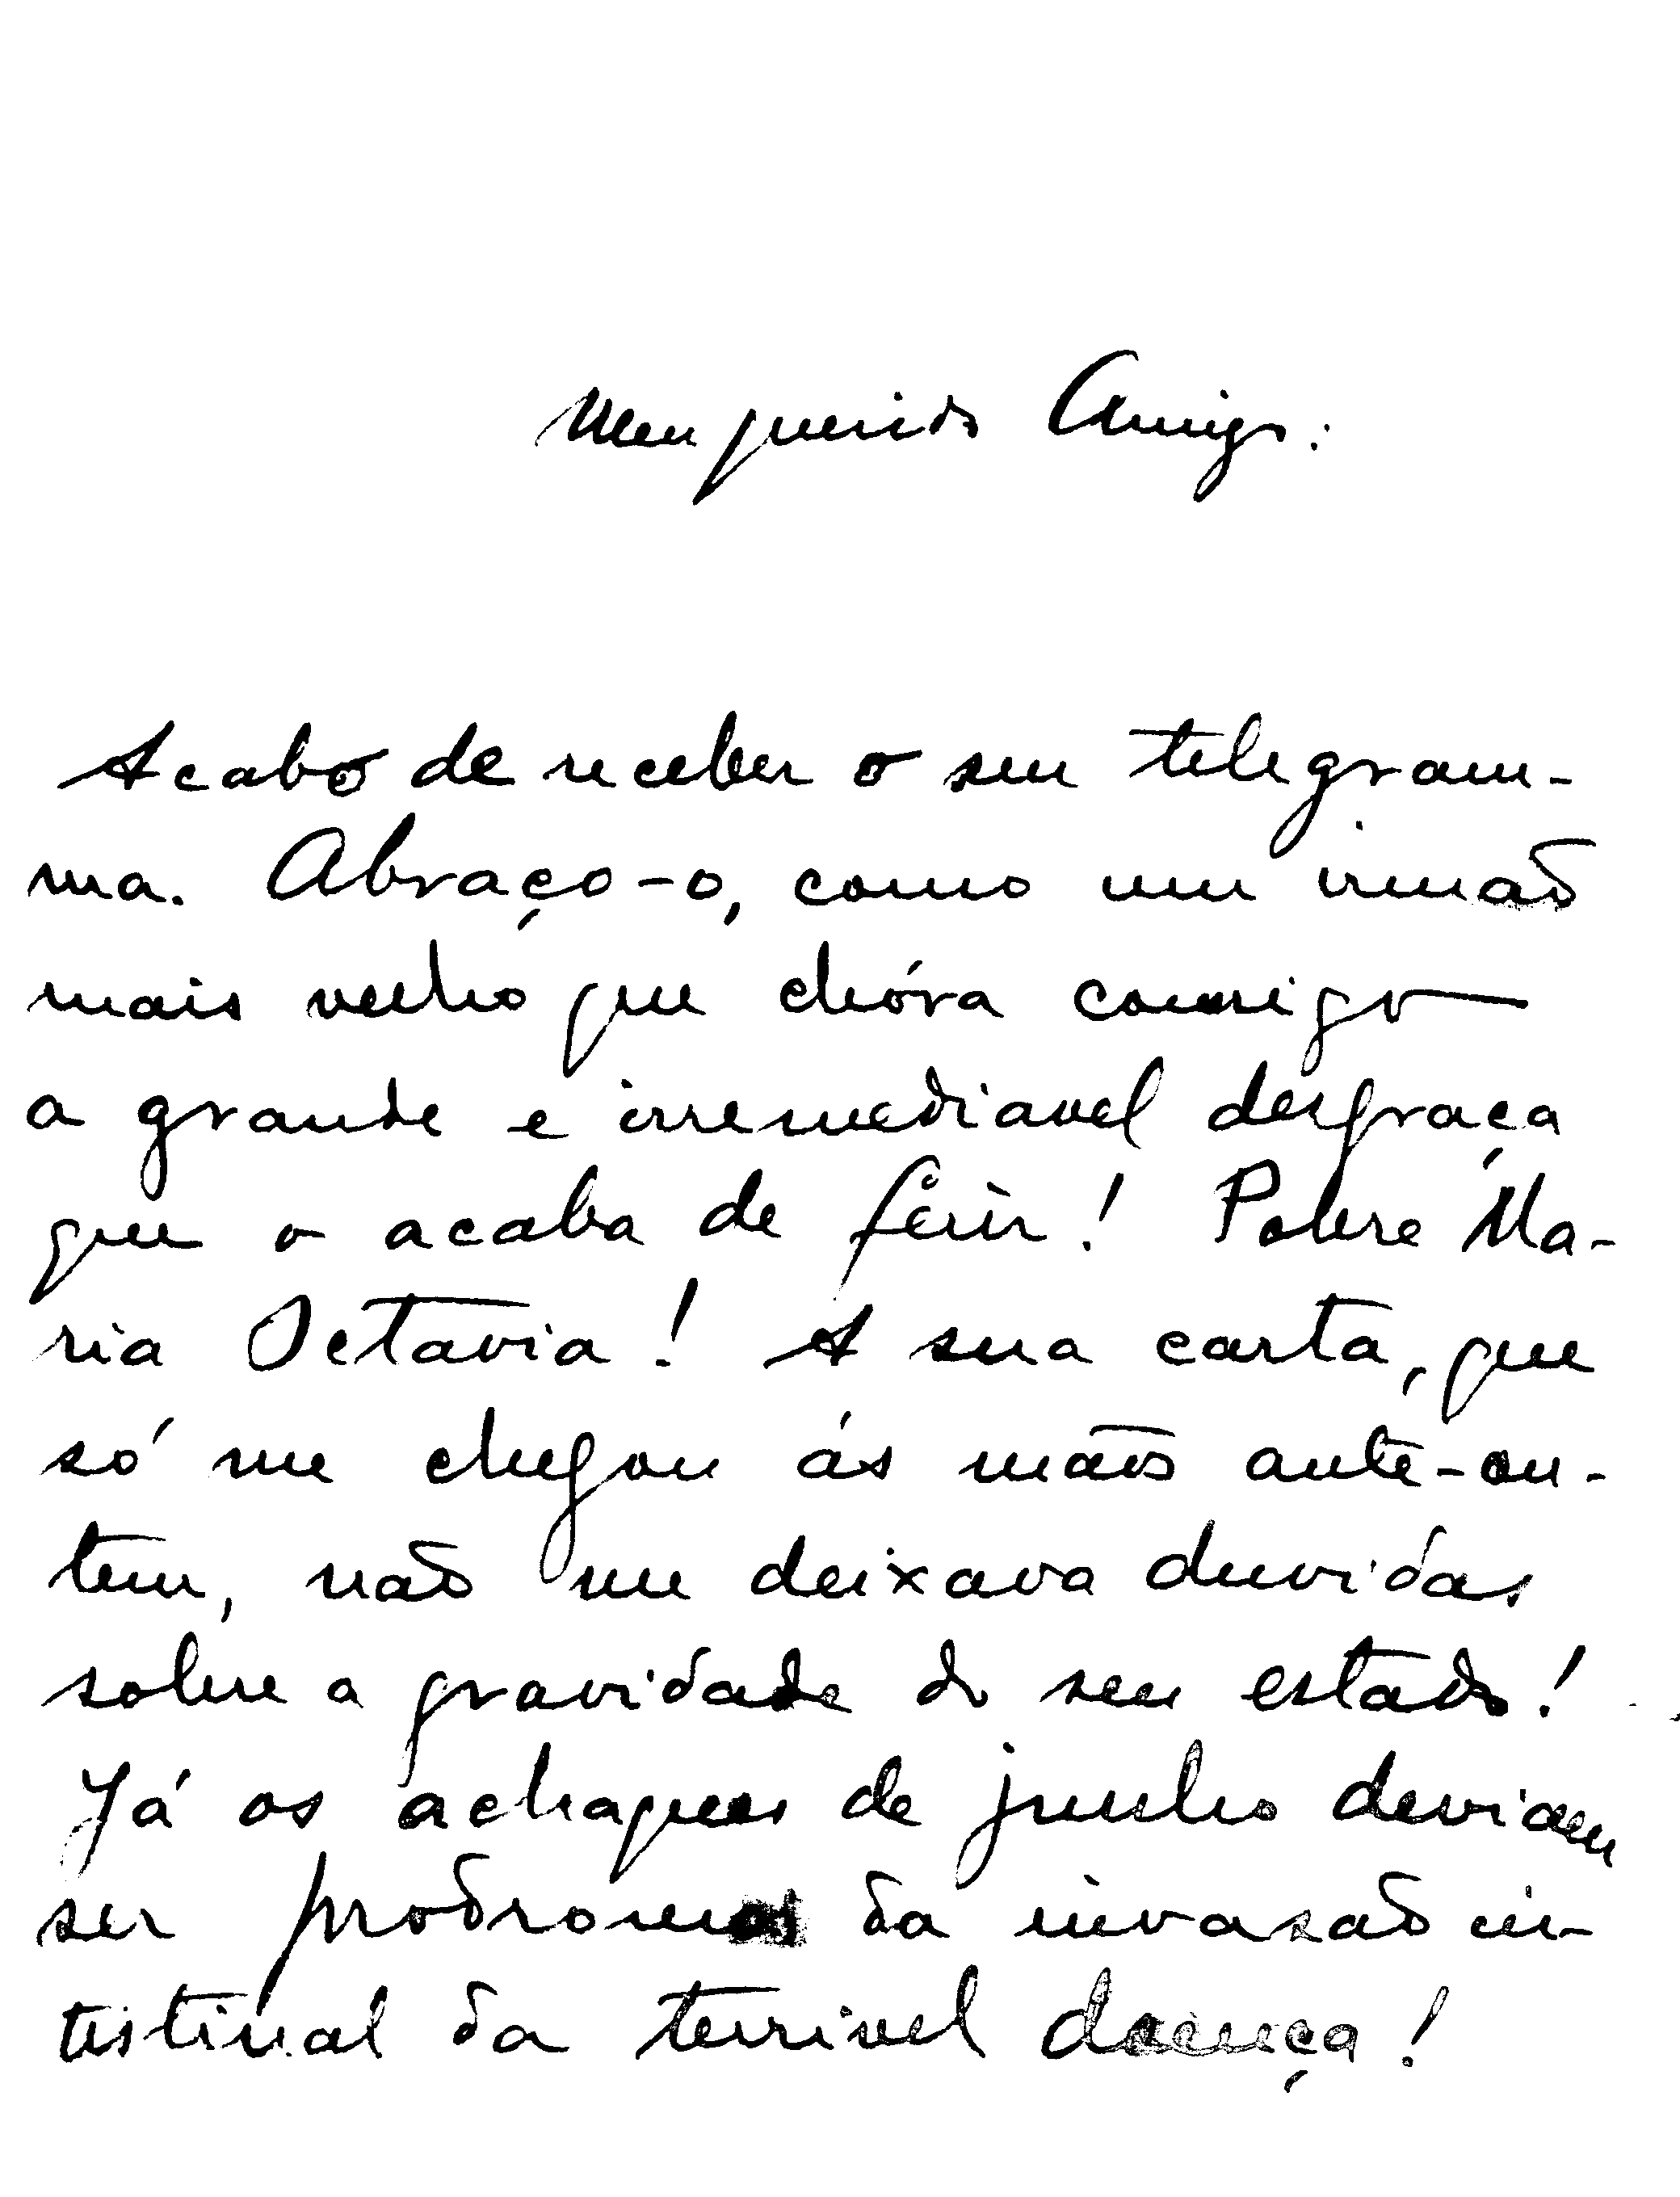 Meu querido Amigo:
Acabo de receber o seu telegram-
ma. Abraço-o, como um irmão
mais velho que chóra comsigo
a grande e irremediavel desgraça
que o acaba de ferir! Pobre Ma-
ria Octavia! A sua carta, que
só me chegou ás mãos ante-on-
tem, não me deixava duvidas
sobre a gravidade do seu estado!
Já os achaques de junho deviam
ser prodromos da invasão in-
testinal da terrivel doença!